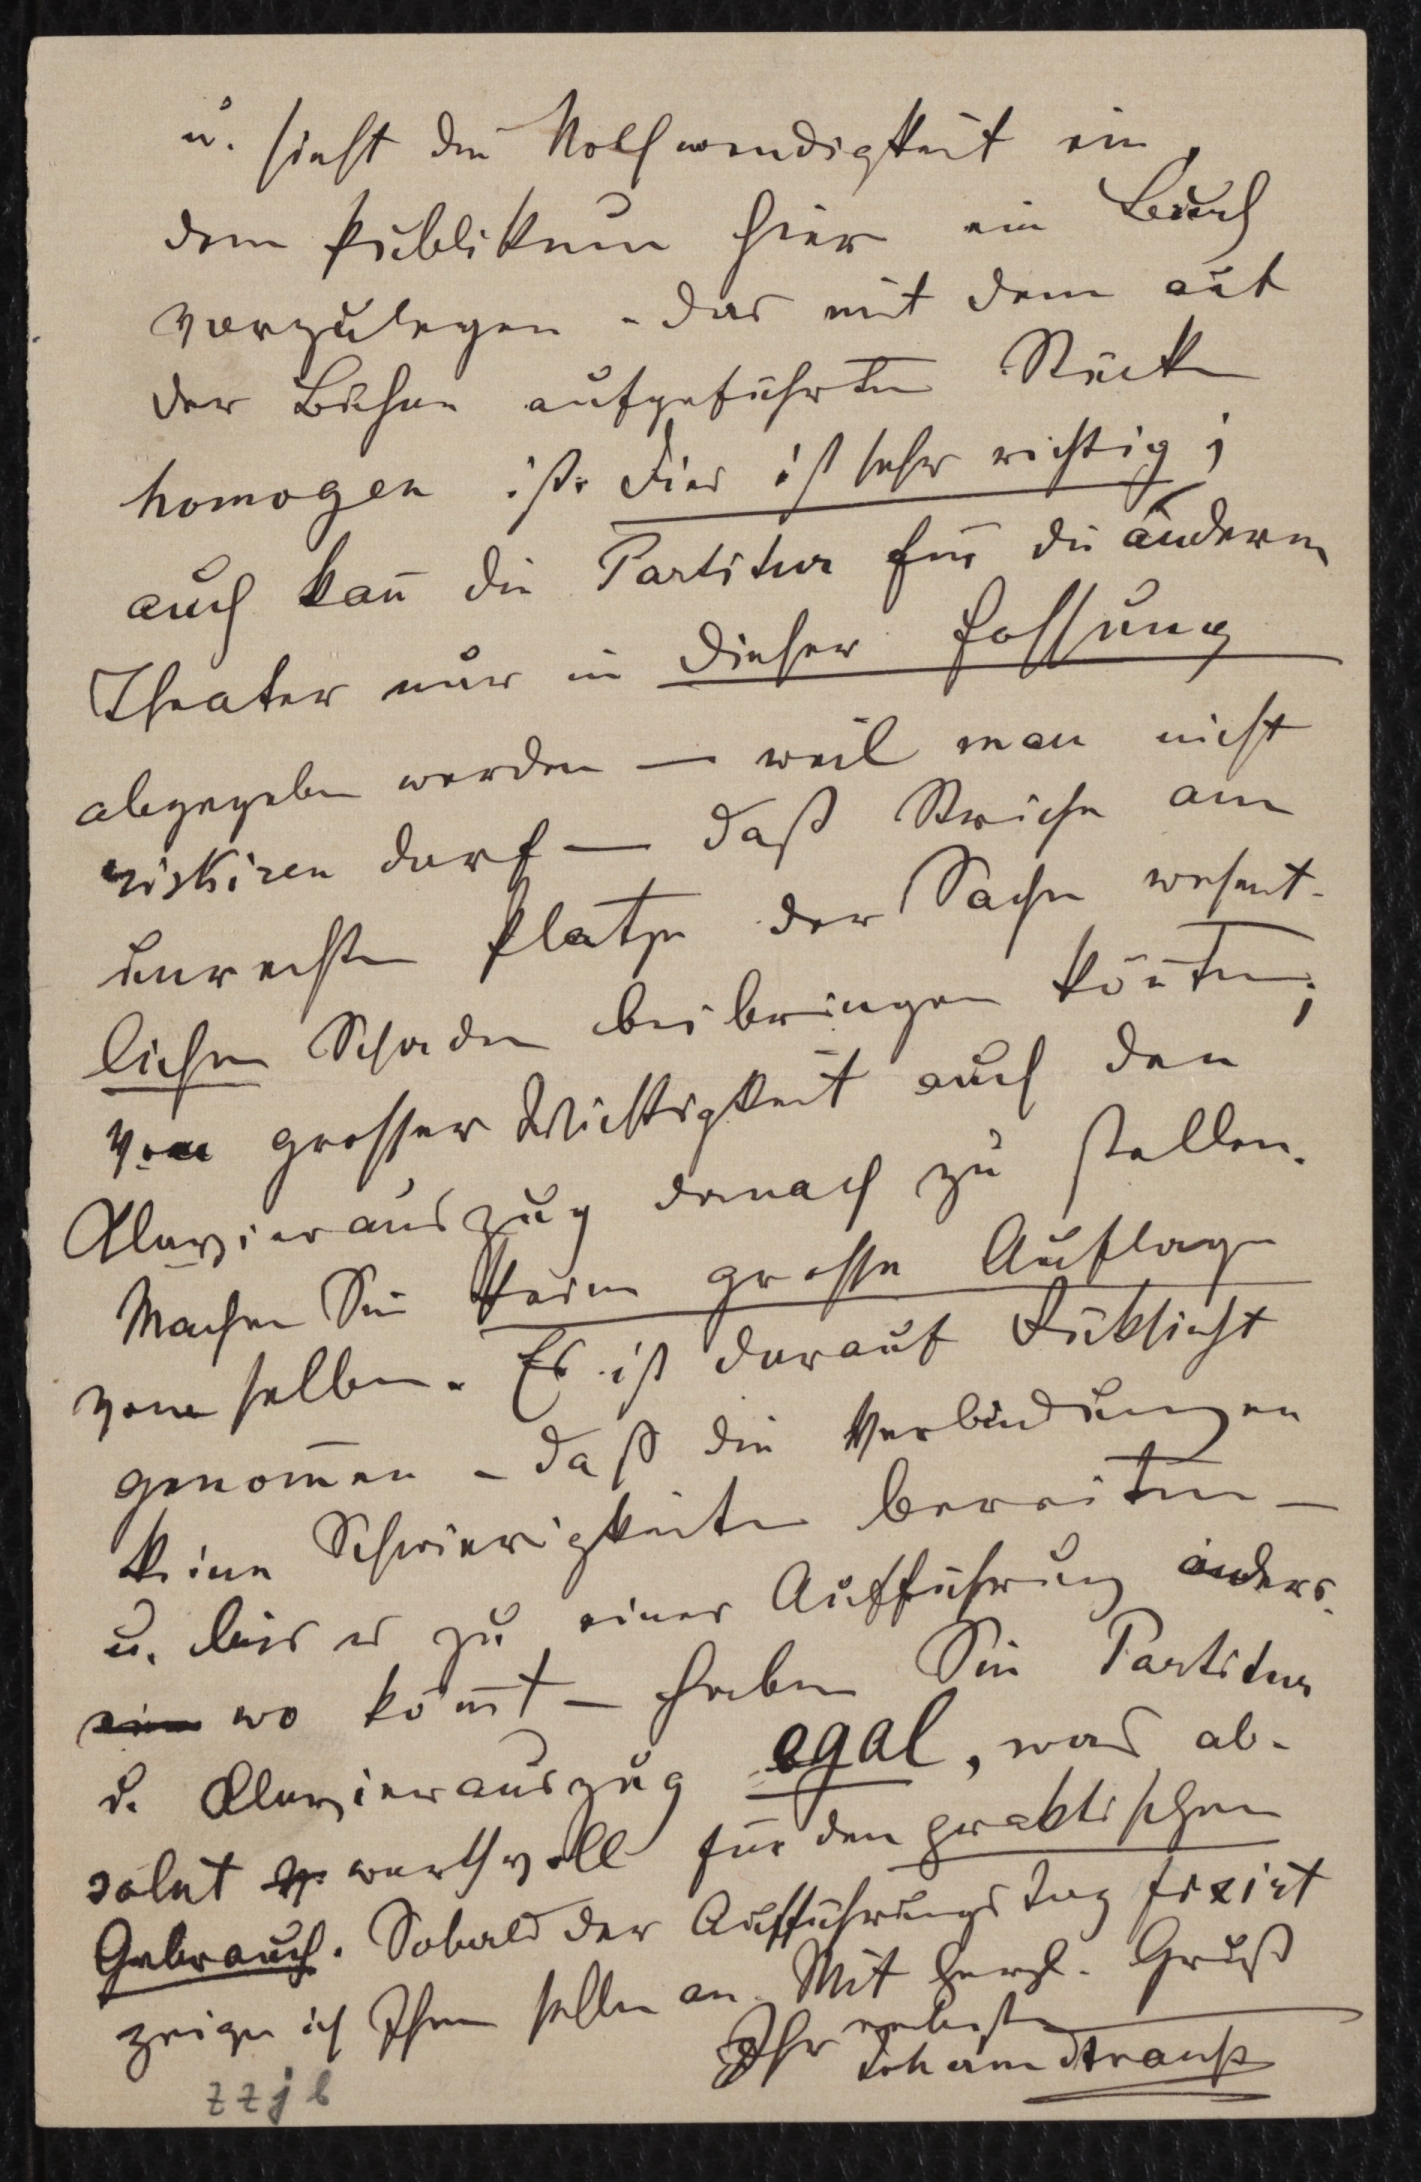 u. sieht die Nothwendigkeit ein,
dem Publikum hier ein Buch
vorzulegen – das mit dem auf
der Bühne aufgeführten Stücke
homogen ist. Dies ist sehr richtig;
auch kañ die Partitur für die anderen
Theater nur in dieser Fassung
abgegeben werden — weil man nicht
riskiren darf — daß Striche am
unrechten Platze der Sache wesent-
lichen Schaden beibringen köñten;
von grosser Wichtigkeit auch den
Clavierauszug darnach zu stellen.
Machen Sie keine grosse Auflage
vom selben. Es ist darauf Rüksicht
genom̄en – daß die Verbindungen
keine Schwierigkeiten bereiten —
u. bis es zu einer Aufführung anders-
wo kom̄t — haben Sie Partitur
u. Clavierauszug egal, was ab-
solut werthvoll für den praktischen
Gebrauch. Sobald der Aufführungstag fixirt
zeige ich Ihnen selben an. Mit herzl. Gruß
Ihr
Johann Strauß
zzjb